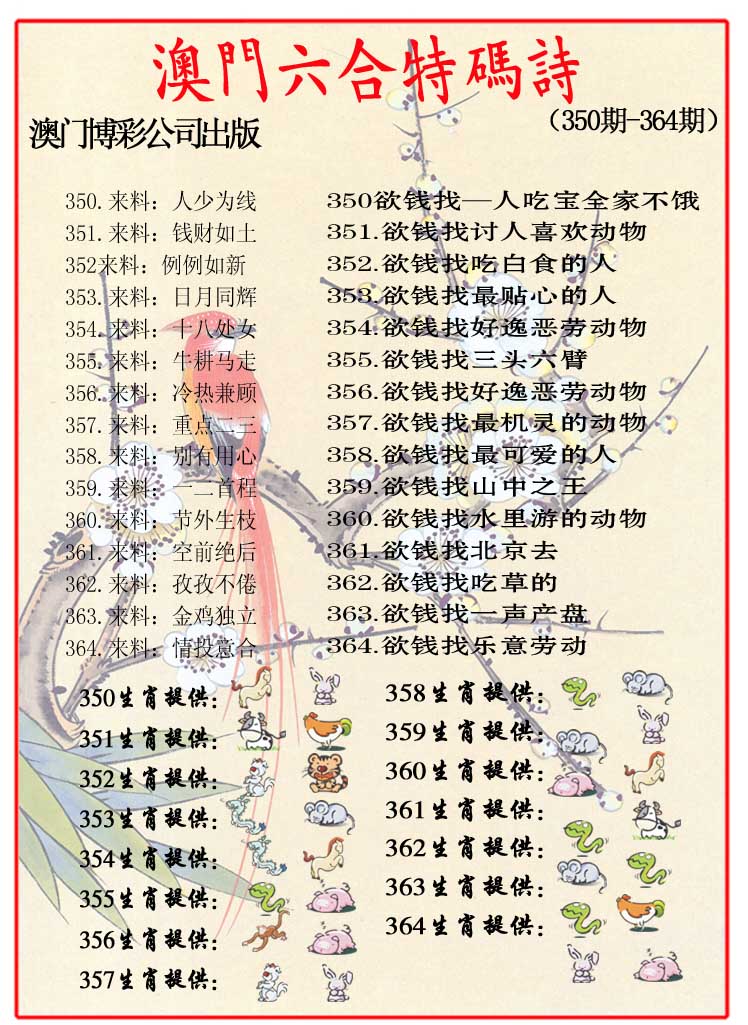 澳門六合特碼詩
澳门博彩公司出版
（350期-364期）
350.来料：人少为线 350欲钱找—人吃宝全家不饿
351.来料：钱财如土 351.欲钱找讨人喜欢动物
352来料：例例如新 352.欲钱找吃白食的人
353.来料：日月同辉 353.欲钱找最贴心的人
354.来料：十八处女 354.欲钱找好逸恶劳动物
355.来料：牛耕马走 355.欲钱找三头六臂
356.来料：冷热兼顾 356.欲钱找好逸恶劳动物
357.来料：重点二三 357.欲钱找最机灵的动物
358.来料：别有用心 358.欲钱找最可爱的人
359.来料：一二首程 359.欲钱找山中之王
360.来料：节外生枝 360.欲钱找水里游的动物
361.来料：空前绝后 361.欲钱找北京去
362.来料：孜孜不倦 362.欲钱找吃草的
363.来料：金鸡独立 363.欲钱找一声产盘
364.来料：情投意合 364.欲钱找乐意劳动
350生肖提供：
351生肖提供：
352生肖提供：
353生肖提供：
354生肖提供：
355生肖提供：
356生肖提供：
357生肖提供：
358生肖提供：
359生肖提供：
360生肖提供：
361生肖提供：
362生肖提供：
363生肖提供：
364生肖提供：